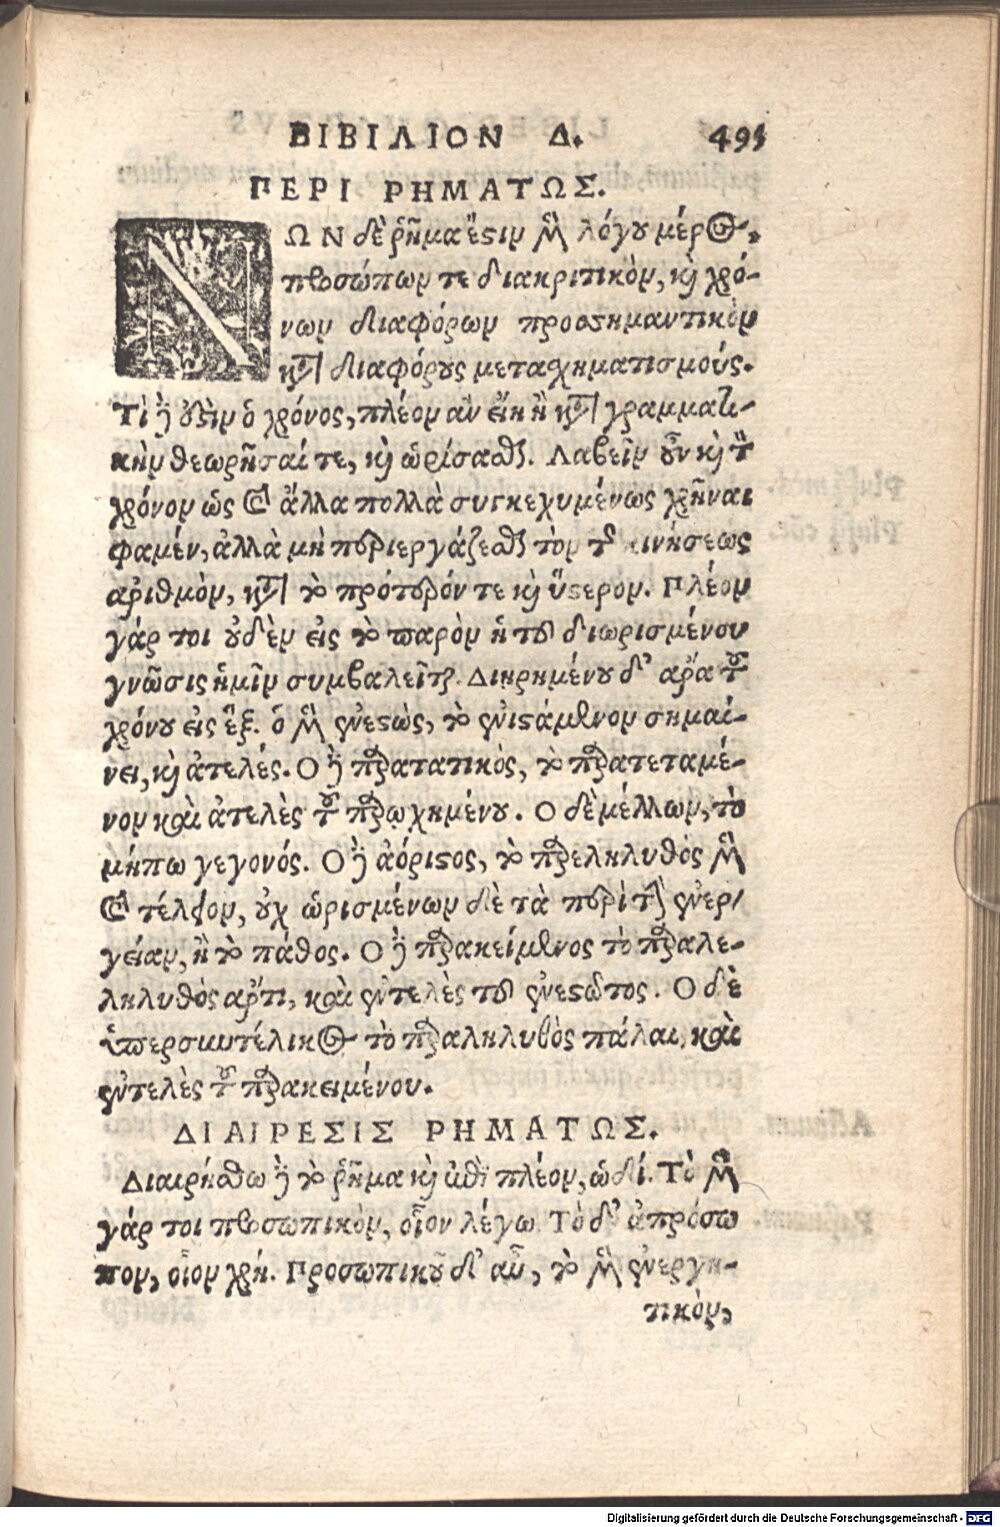 ΒΙΒΙΛΙΟΝ Δ. 495
ΠΕΡΙ ΡΗΜΑΤΩΣ.
ΝΩΝ δὲ ῥῆμα ἔϛιν μὲν λόγου μέρος,
προσώπων τε διακριτικὸν, καὶ χρό-
νων διαφόρων προσσημαντικὸν
κατὰ διαφόρους μεταχηματισμούς.
Τὶ δὲ οὐϛὶν ὁ χρόνος, πλέον ἂν εἴη ἢ κατὰ γραμματι-
κὴν θεωρῆσαί τε, καὶ ὡρίσασθαι. Λαβεῖν οὖν καὶ τὸν
χρόνον ὡς καὶ ἄλλα πολλὰ συγκεχυμένως χρῆναι
φαμέν, ἀλλὰ μὴ περιεργάζεσθαι τὸν τῆς κινήσεως
ἀριθμὸν, κατὰ τὸ πρότερόν τε καὶ ὕϛερον. Πλέον
γάρ τοι οὐδὲν εἰς τὸ παρὸν ἡ τοῦ διωρισμένου
γνῶσις ἡμῖν συμβαλεῖται. Διῃρημένου δ' ἄρα τοῦ
χρόνου εἰς ἓξ. ὁ μὲν ἐνεϛὼς, τὸ ἐνιϛάμενον σημαί-
νει, καὶ ἀτελές. Ο δὲ παρατατικὸς, τὸ παρατεταμέ-
νον καὶ ἀτελὲς τοῦ παρῳχημένου. Ο δὲ μέλλων, τὸ
μήπω γεγονός. Ο δὲ ἀόριϛος, τὸ παρεληλυθὸς μὲν
καὶ τέλειον, οὐχ ὡρισμένων δὲ τὰ περὶ τὴν ἐνερ-
γείαν, ἢ τὸ πάθος. Ο δὲ παρακείμενος τὸ παραλε-
ληλυθὸς ἄρτι, καὶ ἐντελὲς τοῦ ἐνεϛῶτος. Ο δὲ
ὑπερσυντέλικος τὸ παραληλυθὸς πάλαι, καὶ
ἐντελὲς τοῦ παρακειμένου.
ΔΙΑΙΡΕΣΙΣ ΡΗΜΑΤΩΣ.
Διαιρήσθω δὲ τὸ ῥῆμα καὶ ἐπὶ πλέον, ὡδί. Τὸ μὲν
γάρ τοι προσωπικὸν, οἷον λέγω. Τὸ δ' ἀπρόσω
πον, οἷον χρή. Προσωπικοῦ δ' αὖ, τὸ μὲν ἐνεργη-
τικὸν,
Digitalisierung gefördert durch die Deutsche Forschungsgemeinschaft - DFG